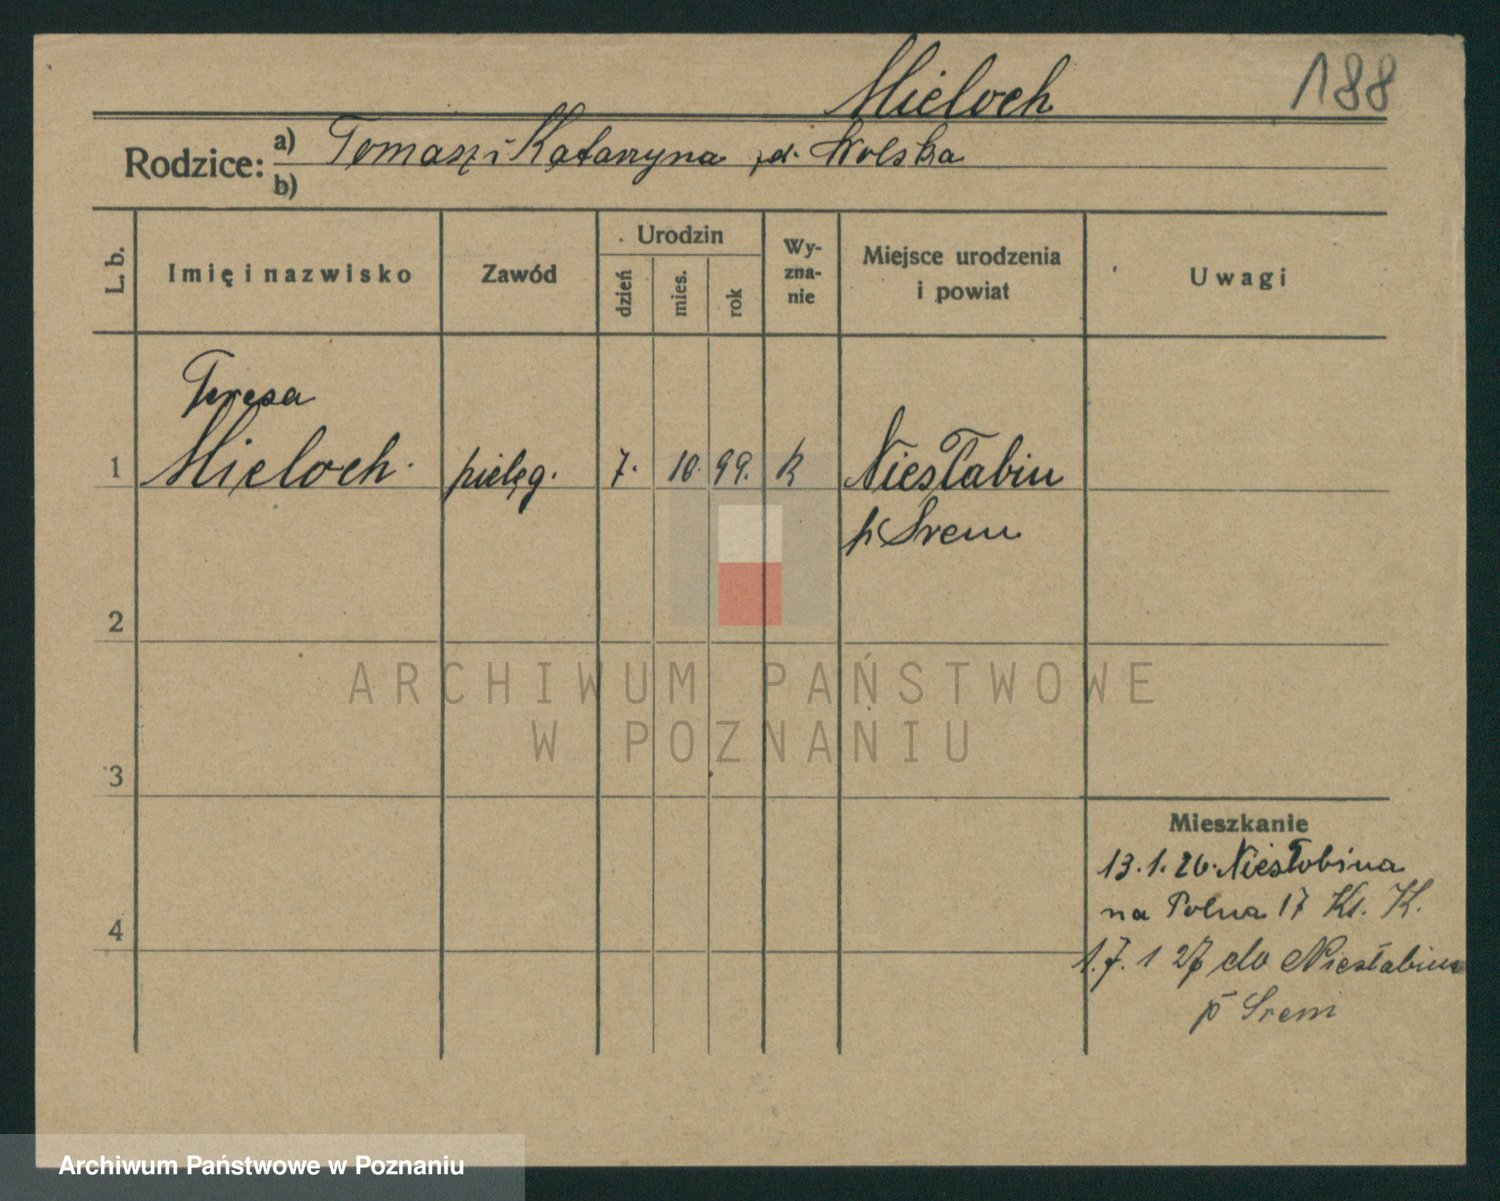 Mieloch 188
Rodzice:
a) Tomasz i Katarzyna zd. Wolska
b)
L. b.
Imię i nazwisko
Zawód
Urodzin
dzień
mies.
rok
Wy-
zna-
nie
Miejsce urodzenia
i powiat
Uwagi
Teresa
1 Mieloch. pielęg. 7. 10. 99. k Niesłabin
p Srem
2
3
4
Mieszkanie
13.1.26. Niesłobina
na Polna 17 Kl. K.
1.7.1 27 do Niesłabin
p Srem
ARCHIWUM PAŃSTWOWE
W POZNANIU
Archiwum Państwowe w Poznaniu